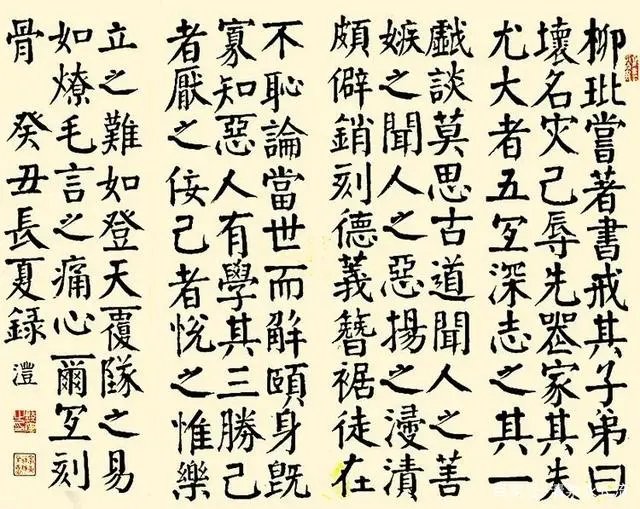 柳玭嘗著書戒其子弟曰
壞名灾己辱先喪家其失
尤大者五冝深志之其一
戯談莫思古道聞人之善
嫉之聞人之惡揚之浸漬
頗僻銷刻德義簪裾徒在
不恥論當世而解頤身旣
寡知惡人有學其三勝己
者厭之佞己者悅之惟樂
立之難如登天覆隊之易
如燎毛言之痛心爾冝刻
骨 癸丑長夏錄 澧